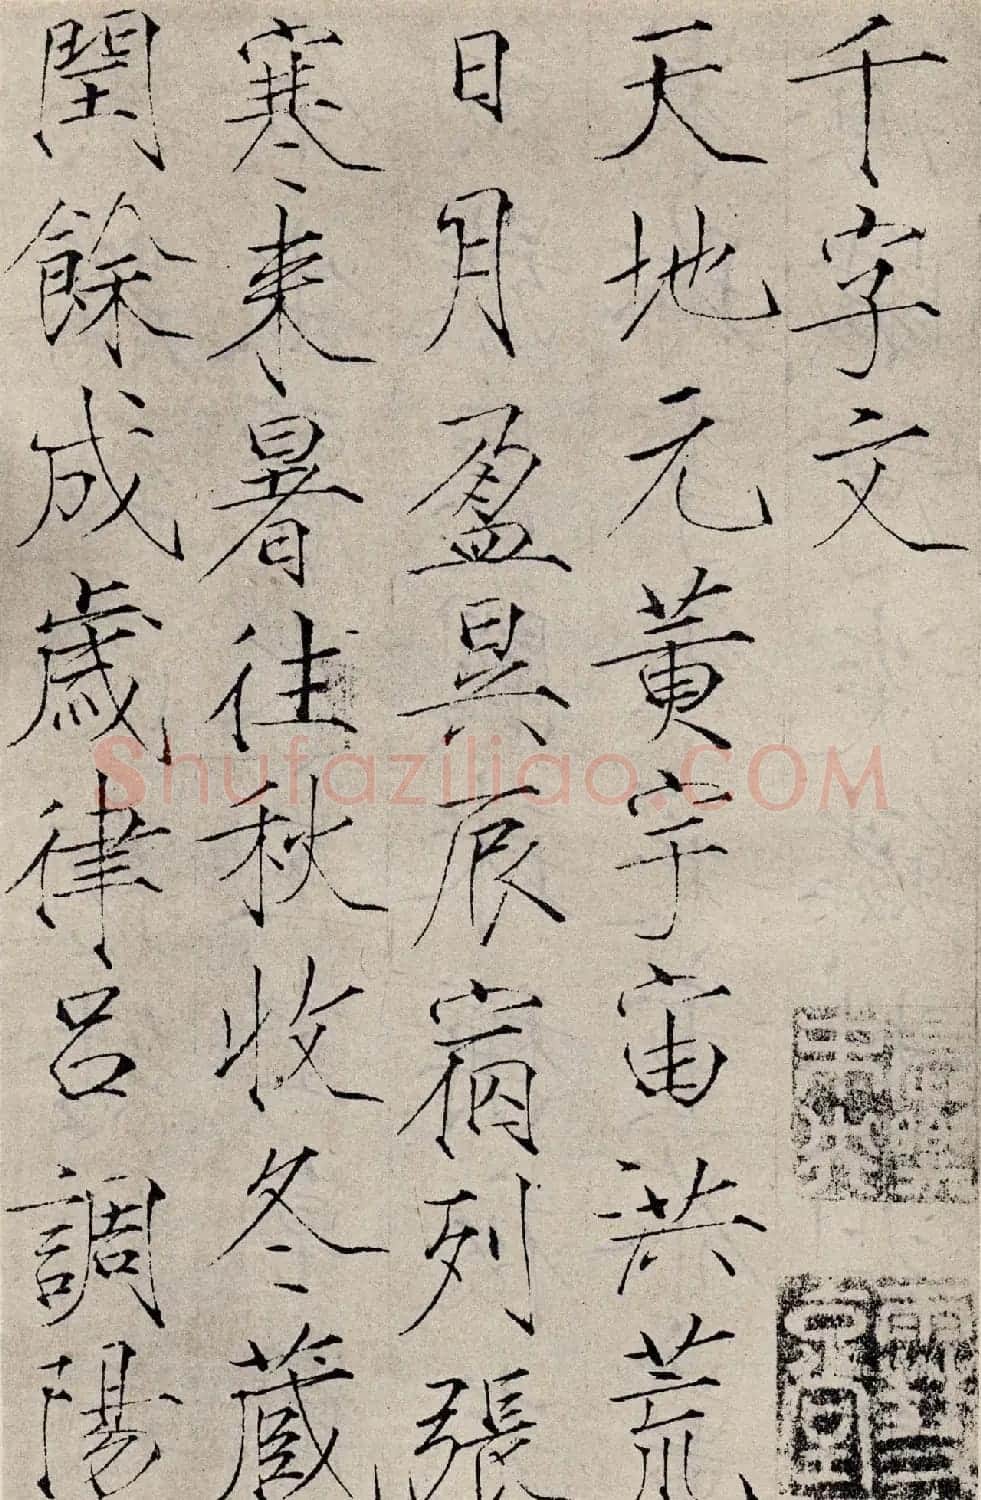 千字文
天地元黄宇宙洪荒
日月盈昃辰宿列張
寒来暑往秋收冬蔵
閏餘成歲律呂調陽
Shufaziliao.COM